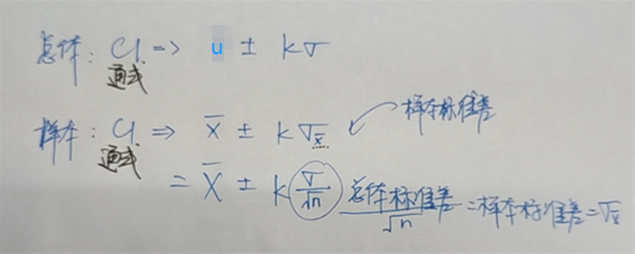 总体: CI => u ± kσ
通式
样本: CI => x̄ ± kσx̄ 样本标准差
通式
= X̄ ± k σ/√n 总体标准差/√n = 样本标准差 = σx̄